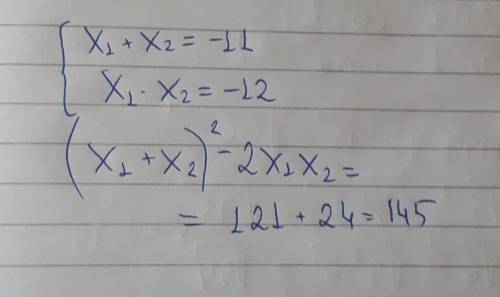 { x₁ + x₂ = -11
x₁ · x₂ = -12
(x₁ + x₂)² - 2x₁x₂ =
= 121 + 24 = 145